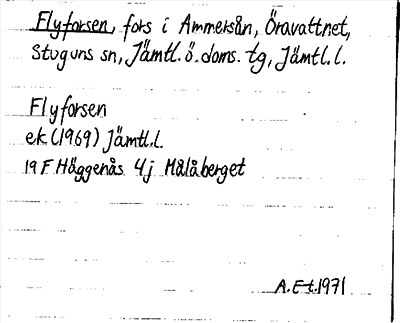 Flyforsen, fors i Ammerån, Öravattnet,
Stuguns sn, Jämtl. ö. doms. tg, Jämtl. l.
Flyforsen
ek. (1969) Jämtl. l.
19 F Häggenås 4j Målåberget
A. E-t. 1971